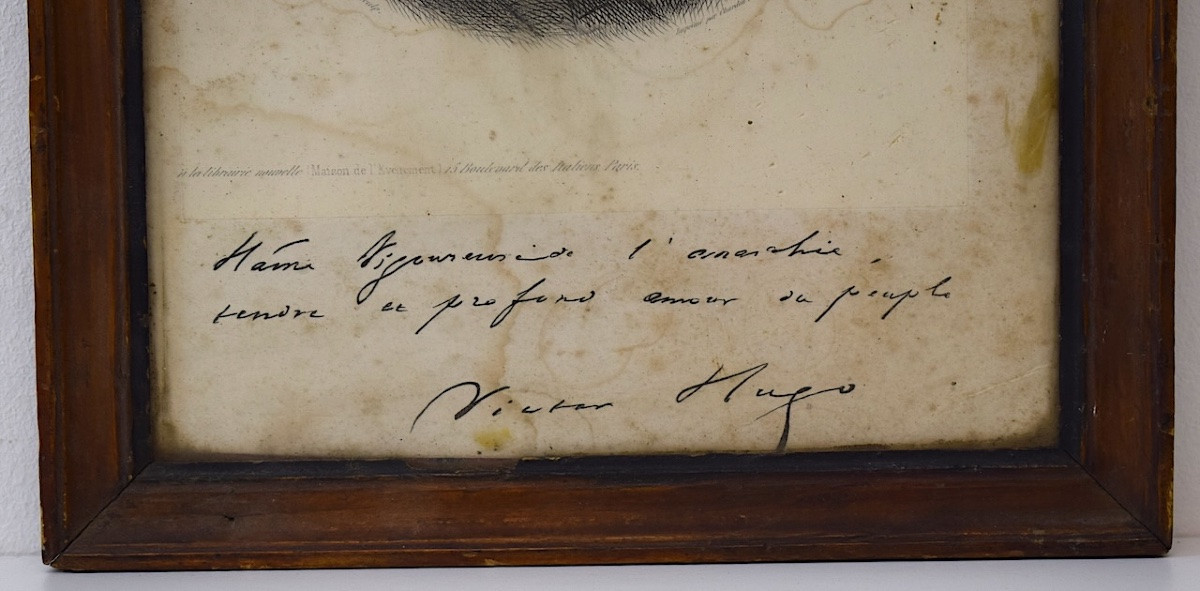 Imprimé par
à la librairie nouvelle (Maison de l'Evenement) 15 Boulevard des Italiens Paris.
Haine Vigoureuse de l'anarchie,
tendre et profond amour du peuple
Victor Hugo